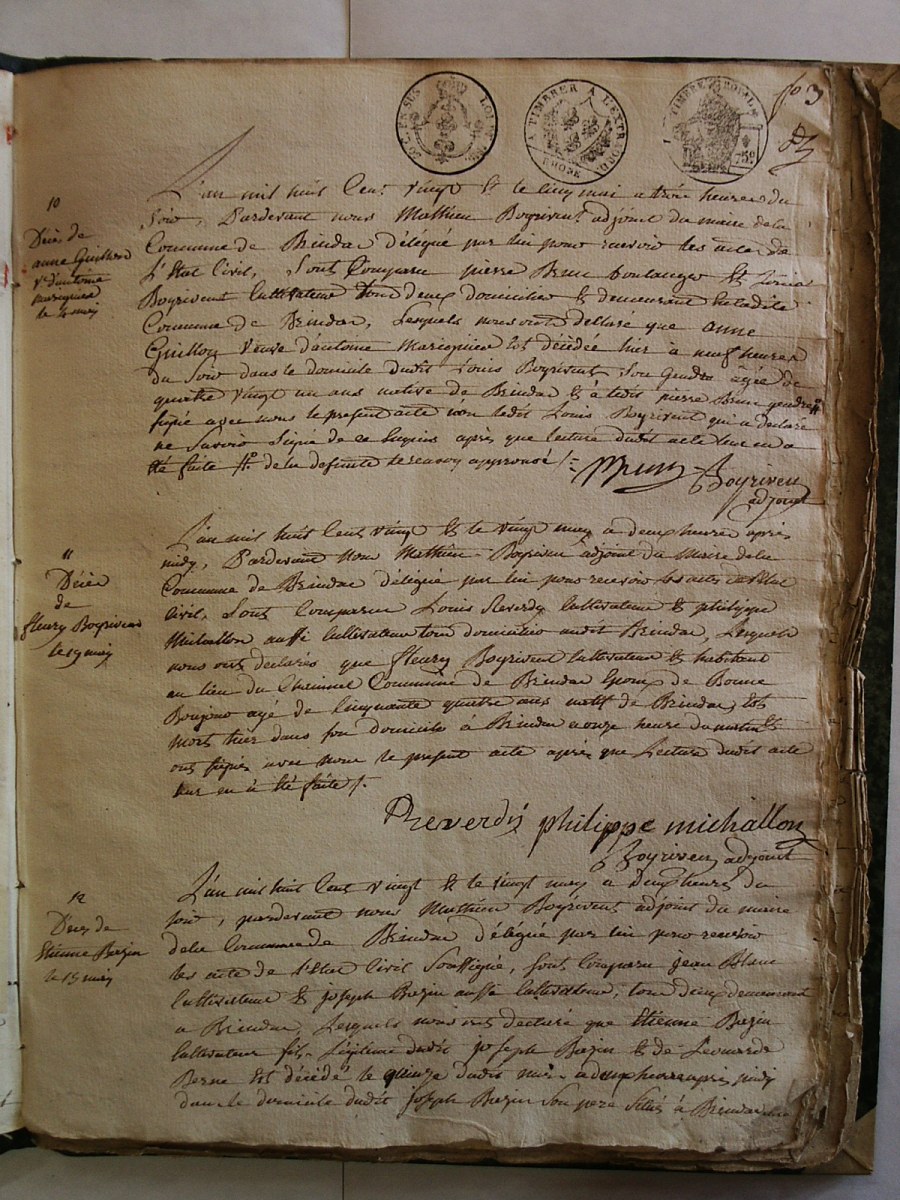 fo 3
A TIMBRER A L'EXTRAORD.
RHONE
TIMBRE ROYAL
75c
10
Décès de
anne Guillon
Ve d'antoine
maregnier
le 4 may
L'an mil huit Cent vingt & le cinq mai a trois heures du
Soir, Pardevant nous Mathieu Boyrivent adjoint du maire de la
Commune de Brindas délégué par lui pour recevoir les acte de
L'Etat Civil, Sont Comparu pierre Brun boulanger & Louis
Boyrivent Cultivateur tous deux domicilié & demeurant ladite
Commune de Brindas, Lesquels nous ont déllaré que anne
Guillon veuve d'antoine Maregnier Est décédée hier à neuf heures
du Soir dans le domicile dudit Louis Boyrivent, Son Gendre âgée de
quatre vingt un ans native de Brindas & à ledit pierre Brun gendre
Signé avec nous le present acte non ledit Louis Boyrivent qui a declaré
ne Savoir Signé de ce Enquis après que lecture dudit acte leur en a
été faite /. de la défunte Renvoy approuvé /.
Brun Boyriven
adjoint
11
Décès
de
fleury Boyrivent
le 19 may
L'an mil huit Cent vingt & le vingt may a deux heures après
midy, Pardevant Nous Mathieu Boyrivent adjoint du Maire de la
Commune de Brindas délégué par lui pour recevoir les actes de l'Etat
Civil, Sont Comparu Louis Reverdy Cultivateur & philippe
Michallon aussi Cultivateur tous domicilié audit Brindas, Lesquels
nous ont déclarés que fleury Boyrivent Cultivateur & habitant
au lieu du Commune de Brindas Epoux de Bonne
Boujour agé de Cinquante quatre ans natif de Brindas, Est
mort hier dans son domicile à Brindas a onze heure du matin &
ont Signés avec nous le present acte après que Lecture dudit acte
leur en à été faite /.
Reverdy philippe michallon
Boyriven adjoint
12
Décès de
Etienne Bazin
le 15 may
L'an mil huit Cent vingt & le vingt may a deux heures du
soir, pardevant nous Mathieu Boyrivent adjoint du maire
de la Commune de Brindas délégué par lui pour recevoir
les acte de l'Etat Civil Soussigné, Sont Comparu Jean Blanc
Cultivateur & joseph Bazin aussi Cultivateur, tous deux demeurant
a Brindas, Lesquels nous ont declaré que Etienne Bazin
Cultivateur fils Légitime dudit joseph Bazin & de Leonarde
Berne Est décédé le quinze dudit mois a deux heures après midi
dans le domicile dudit joseph Bazin Son pere Situé à Brindas